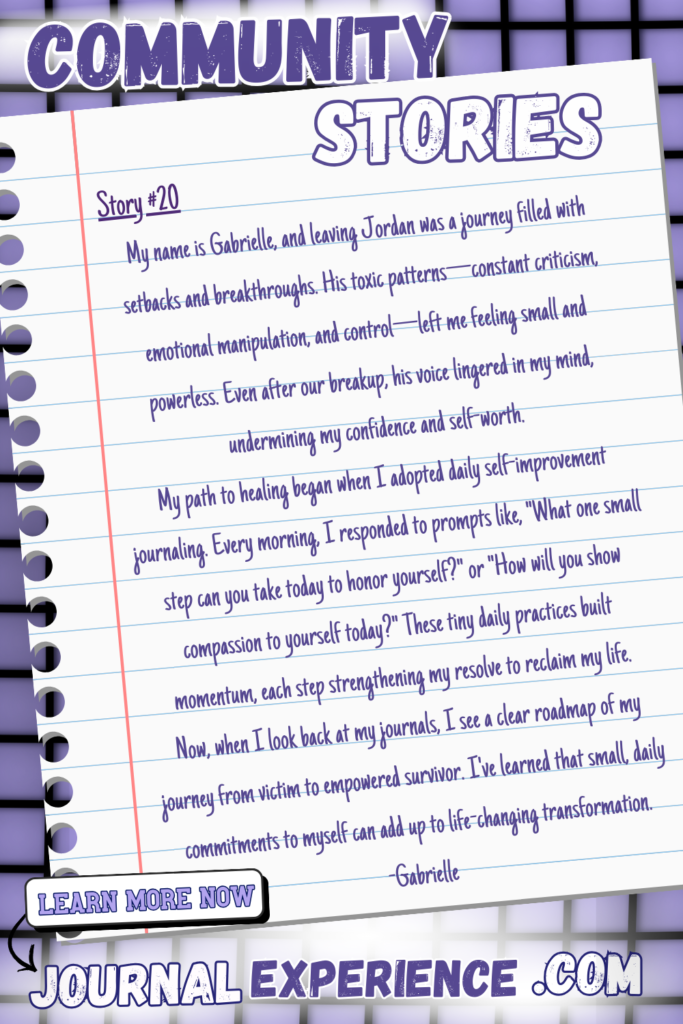 COMMUNITY
STORIES
Story #20
My name is Gabrielle, and leaving Jordan was a journey filled with
setbacks and breakthroughs. His toxic patterns—constant criticism,
emotional manipulation, and control—left me feeling small and
powerless. Even after our breakup, his voice lingered in my mind,
undermining my confidence and self-worth.
My path to healing began when I adopted daily self-improvement
journaling. Every morning, I responded to prompts like, "What one small
step can you take today to honor yourself?" or "How will you show
compassion to yourself today?" These tiny daily practices built
momentum, each step strengthening my resolve to reclaim my life.
Now, when I look back at my journals, I see a clear roadmap of my
journey from victim to empowered survivor. I've learned that small, daily
commitments to myself can add up to life-changing transformation.
-Gabrielle
LEARN MORE NOW
JOURNAL EXPERIENCE .COM